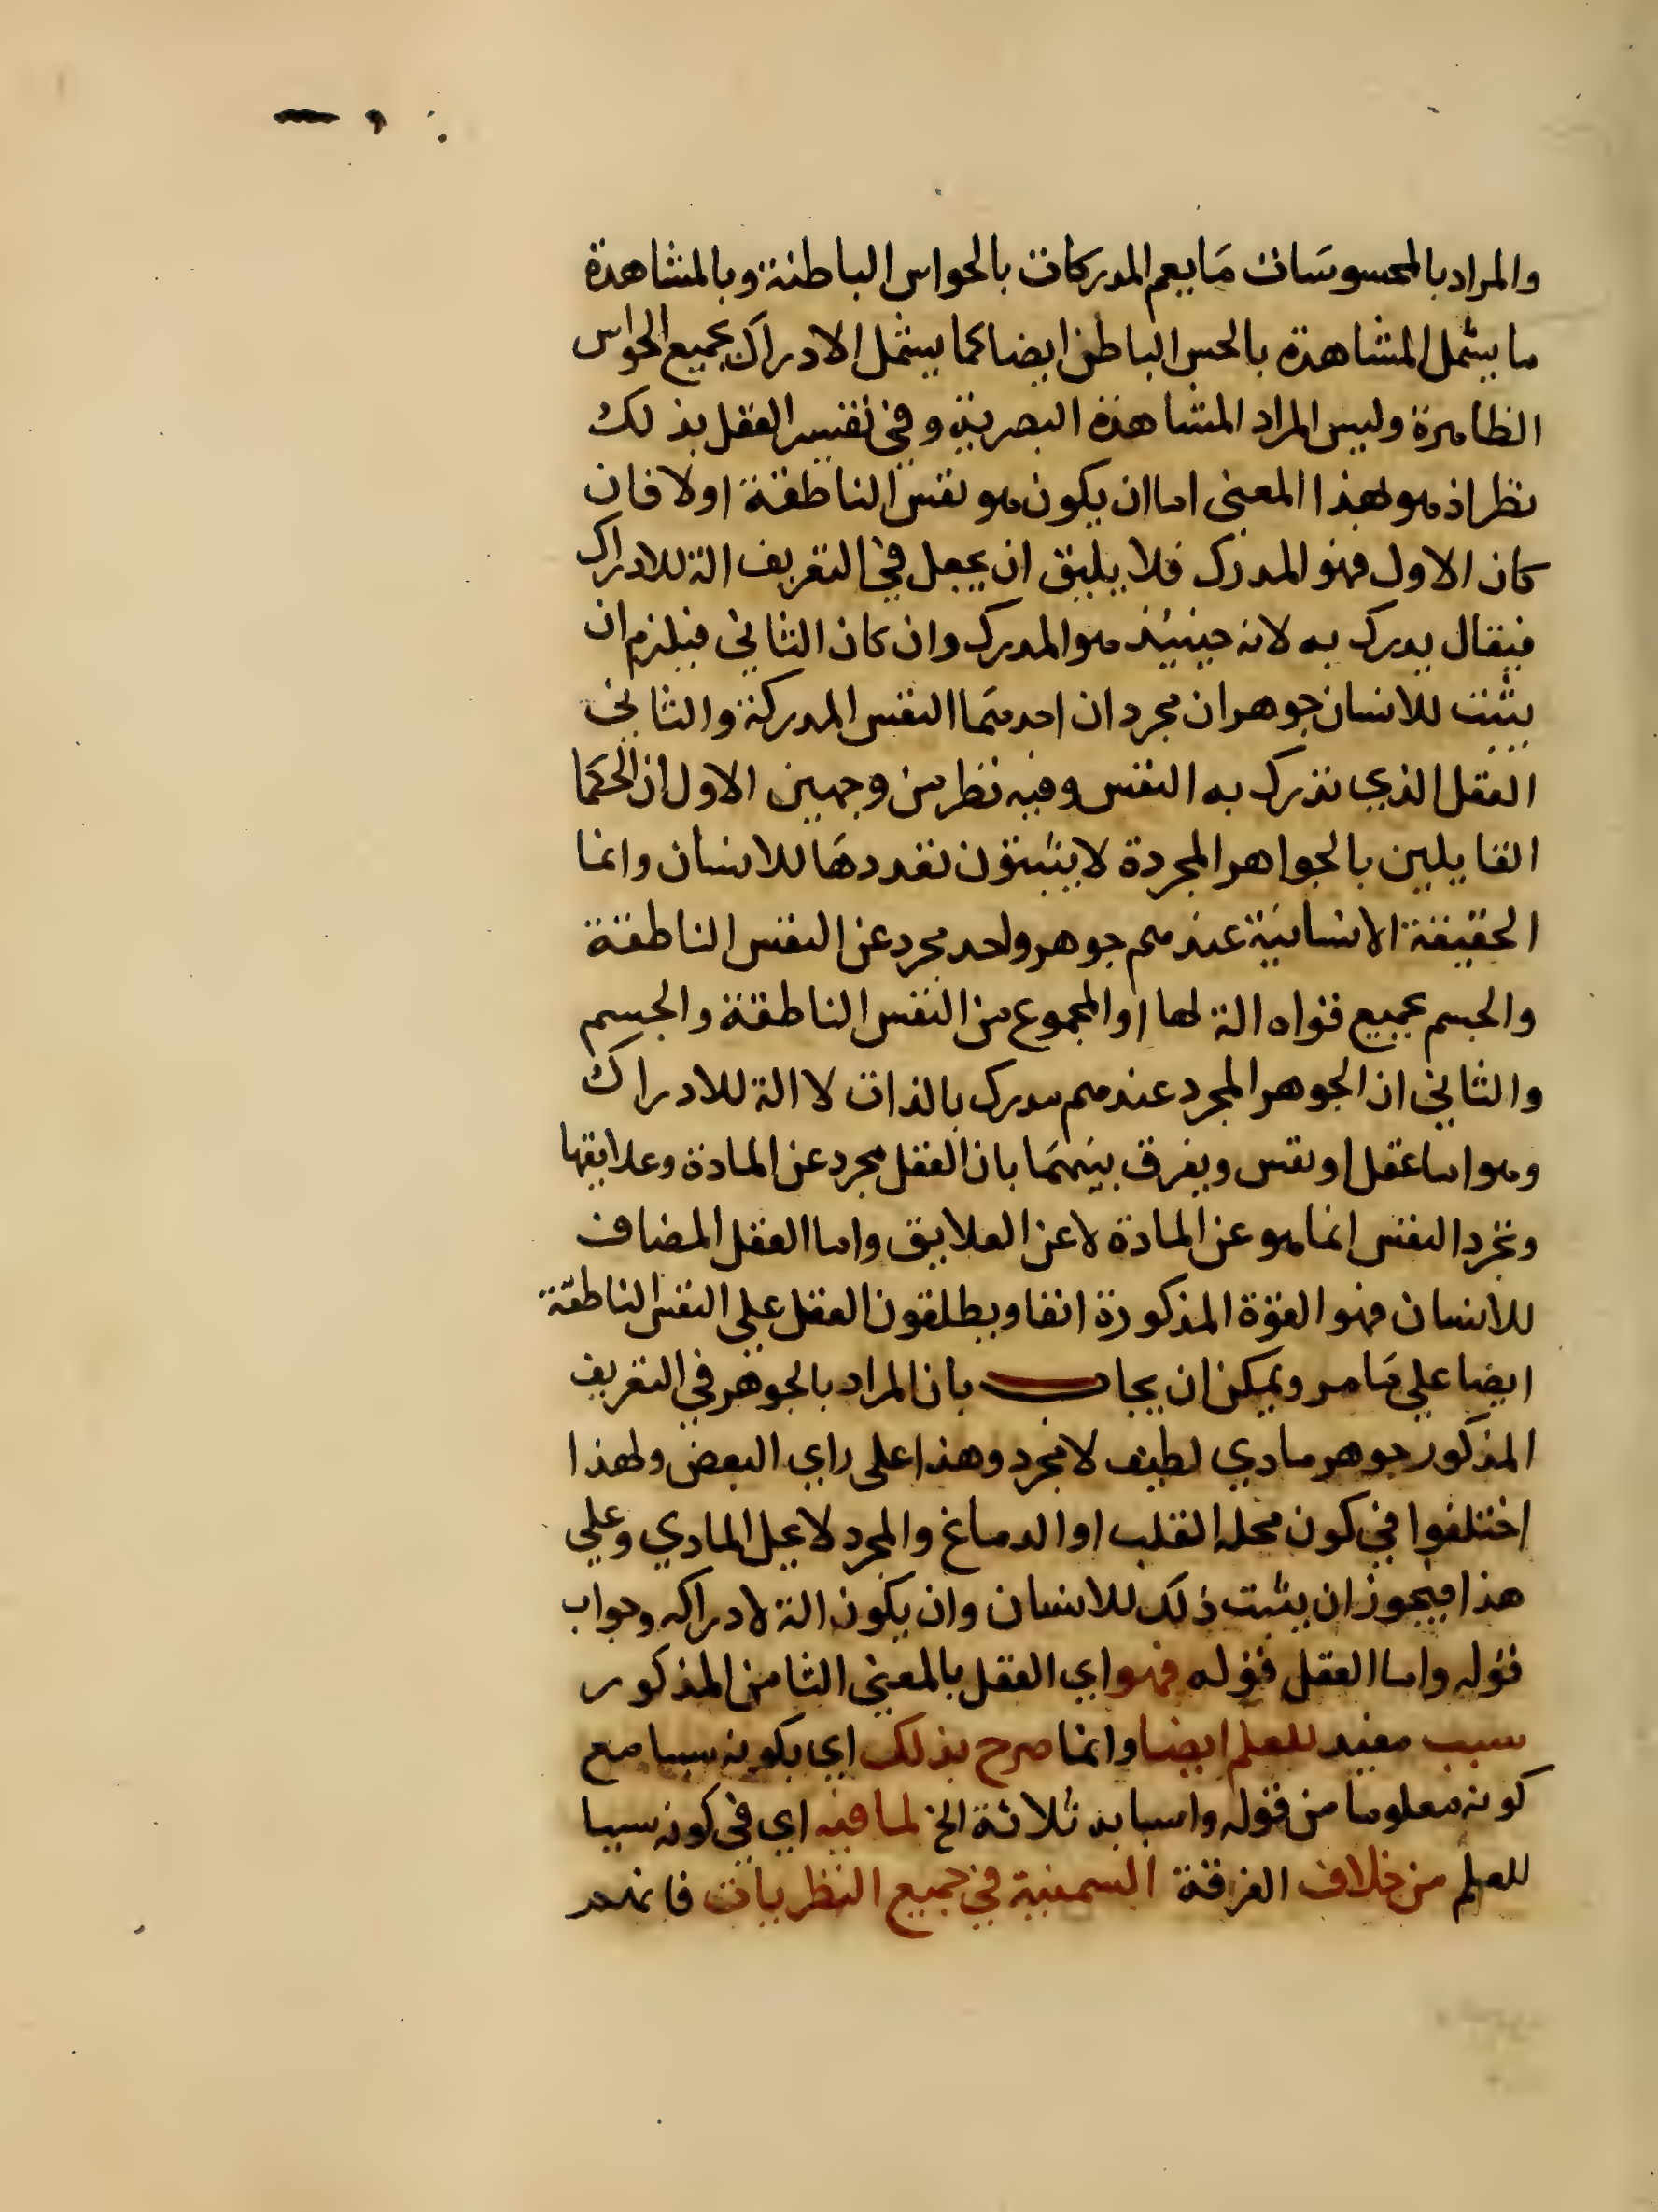 والمراد بالمحسوسات ما يعم المدركات بالحواس الباطنة وبالمشاهدة
ما يشمل المشاهدة بالحس الباطن ايضا كما يشمل الادراك بجميع الحواس
الظاهرة وليس المراد المشاهدة البصرية وفي تفسير العقل بذلك
نظر اذ هو بهذا المعنى اما ان يكون هو نفس الناطقة اولا فان
كان الاول فهو المدرك فلا يليق ان يجعل في التعريف الة للادراك
فيقال يدرك به لانه حينيذ هو المدرك وان كان الثاني فيلزم ان
يثبت للانسان جوهران مجردان احدهما النفس المدركة والثاني
العقل الذي تدرك به النفس وفيه نظر من وجهين الاول ان الحكما
القايلين بالجواهر المجردة لا يثبتون تعددها للانسان وانما
الحقيقة الانسانية عندهم جوهر واحد مجرد عن النفس الناطقة
والجسم بجميع قواه الة لها او المجموع من النفس الناطقة والجسم
والثاني ان الجوهر المجرد عندهم مدرك بالذات لا الة للادراك
وهو اما عقل او نفس ويفرق بينهما بان العقل مجرد عن المادة وعلايقها
وتجرد النفس انما هو عن المادة لا عن العلايق واما العقل المضاف
للانسان فهو القوة المذكورة انفا ويطلقون العقل علي النفس الناطقة
ايضا علي ما مر ويمكن ان يجاب بان المراد بالجوهر في التعريف
المذكور جوهر مادي لطيف لا مجرد وهذا على راي البعض ولهذا
اختلفوا في كون محله القلب او الدماغ والمجرد لا يحل المادي وعلي
هذا فيجوز ان يثبت ذلك للانسان وان يكون الة لادراكه وجواب
قوله واما العقل قوله فهو اي العقل بالمعنى الثامن المذكور
سبب مفيد للعلم ايضا وانما صرح بذلك اي بكونه سببا مع
كونه معلوما من قوله واسبابه ثلاثة الخ لما فيه اي في كونه سببا
للعلم من خلاف الفرقة السمنية في جميع النظريات فانهم